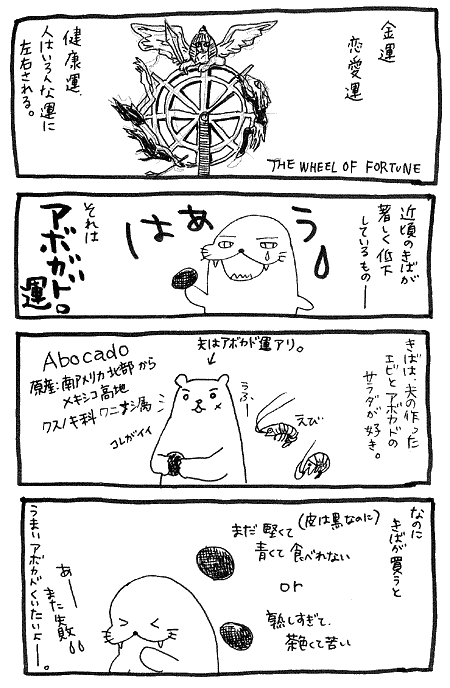 金運
恋愛運
健康運、
人はいろんな運に
左右される。
THE WHEEL OF FORTUNE
近頃のきばが
著しく低下
しているもの―
はぁぅ
それは
アボガド。
運
きばは、夫の作った
エビとアボカドの
サラダが好き。
夫はアボカド運アリ。
うふー
えび
Abocado
原産:南アメリカ北部から
メキシコ高地
クスノキ科ワニナシ属
コレがイイ
なのに
きばが買うと
(皮は黒なのに)
まだ堅くて
青くて食べれない
or
熟しすぎて、
茶色くて苦い
あー
また失敗
うまいアボカドくいたいよー。